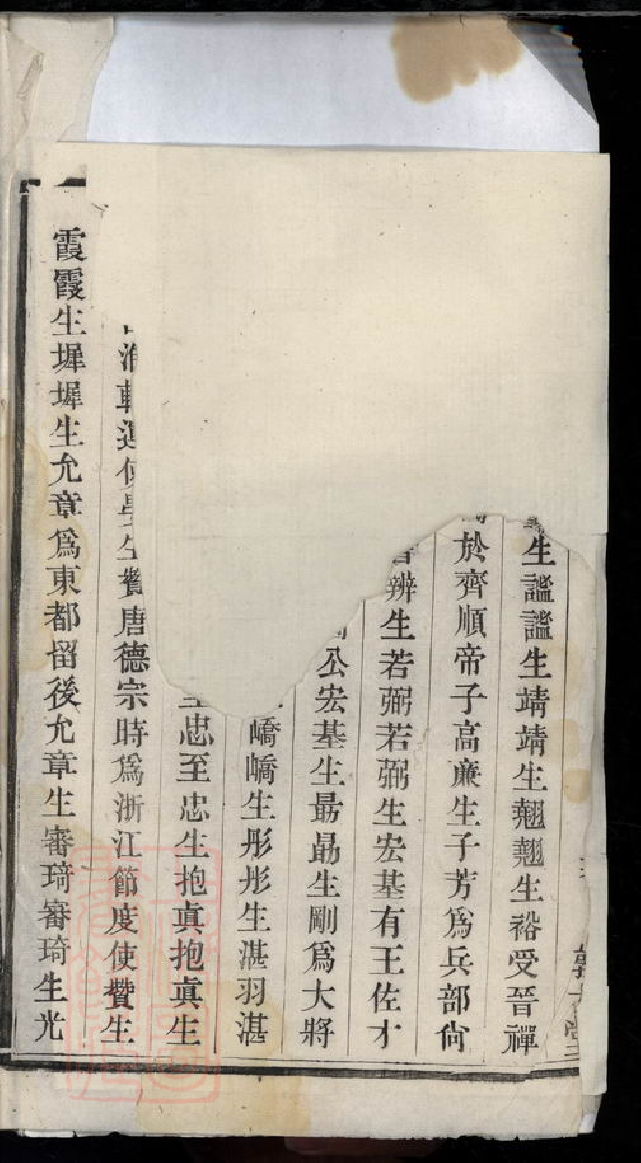 生謐謐生靖靖生翹翹生裕受晉禪
於齊順帝子高廉生子芳爲兵部尙
辨生若弼若弼生宏基有王佐才
公宏基生勗勗生剛爲大將
嶠嶠生彤彤生湛羽湛
忠至忠生抱眞抱眞生
唐德宗時爲浙江節度使贊生
霞霞生墀墀生允章爲東都留後允章生審琦審琦生光